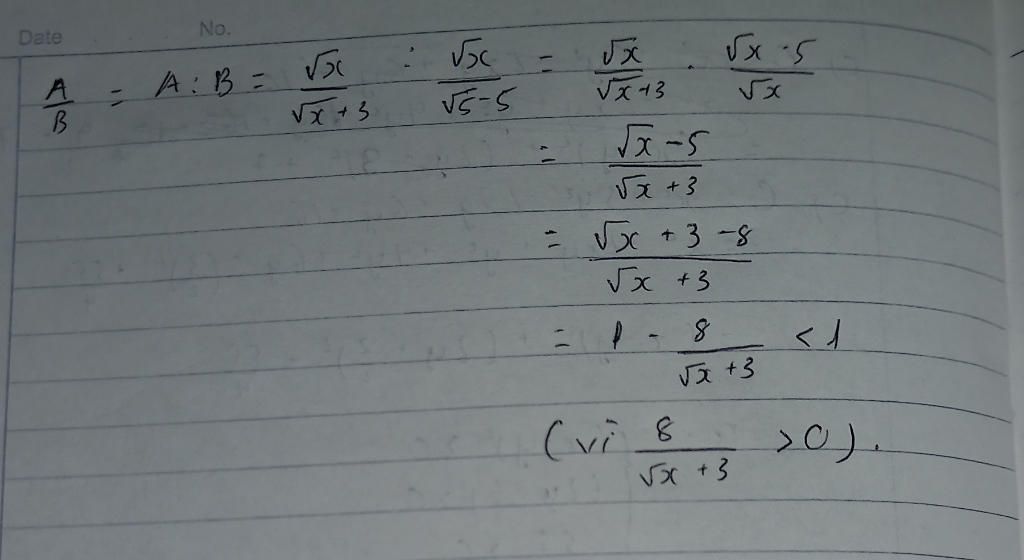 Date No.
A/B = A : B = √x/(√x + 3) : √x/(√5 - 5) = √x/(√x + 3) . (√x - 5)/√x
= (√x - 5)/(√x + 3)
= (√x + 3 - 8)/(√x + 3)
= 1 - 8/(√x + 3) < 1
(vì 8/(√x + 3) > 0).